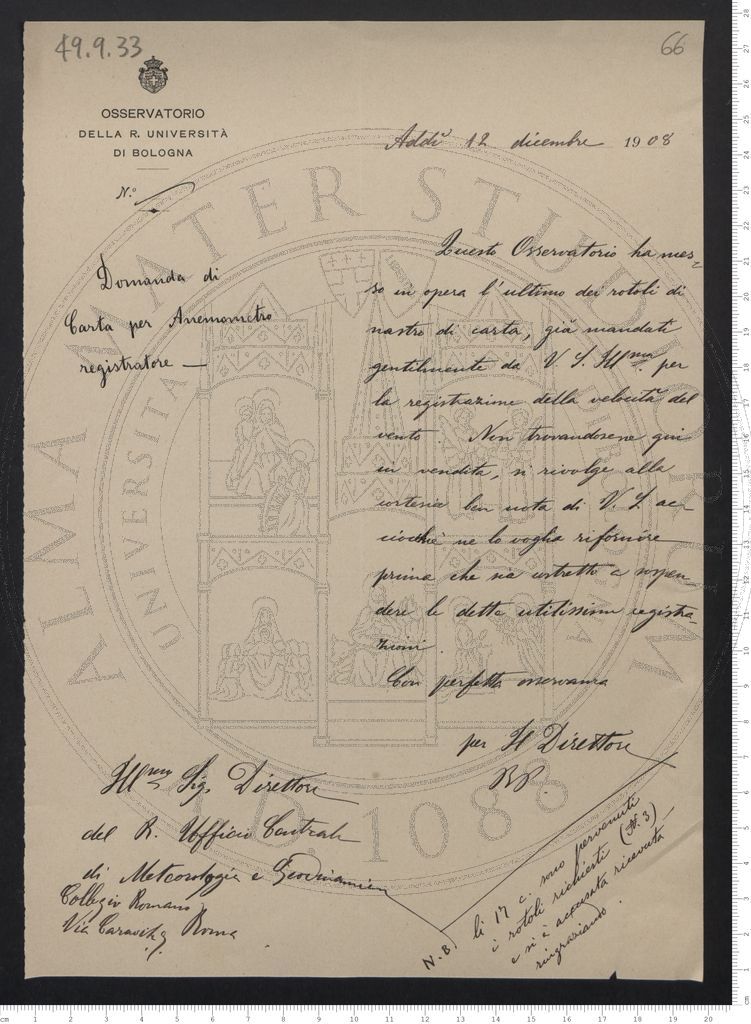 49.9.33
66
OSSERVATORIO
DELLA R. UNIVERSITÀ
DI BOLOGNA
N.°
Addì 12 dicembre 1908
Domanda di
Carta per Anemometro
registratore —
Questo Osservatorio ha mes-
so in opera l'ultimo dei rotoli di
nastro di carta, già mandati
gentilmente da V. S. Illma. per
la registrazione della velocità del
vento. Non trovandosene qui
in vendita, si rivolge alla
cortesia ben nota di V. S. ac-
ciocchè ne lo voglia rifornire
prima che sia costretto a sospen-
dere le dette utilissime registra-
zioni.
Con perfetta osservanza
per Il Direttore
Illmo Sig. Direttore
del R. Ufficio Centrale
di Meteorologia e Geodinamica
Collegio Romano
Via Caravita 7 Roma
N.B. li 17 c. sono pervenuti
i rotoli richiesti (N. 3)
e si è accusata ricevuta
ringraziando.
ALMA MATER STUDIORUM
UNIVERSITÀ
A.D. 1088